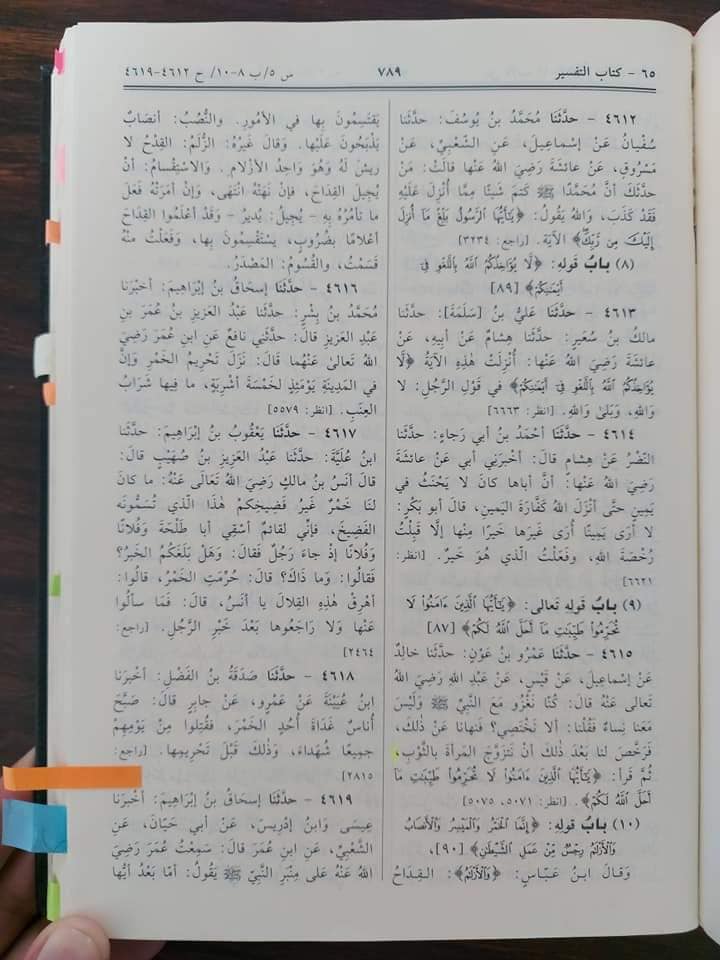 ٦٥ - كتاب التفسير
٧٨٩
س ٥/ب ٨-١٠/ ح ٤٦١٢-٤٦١٩
٤٦١٢ - حدَّثَنا مُحَمَّدُ بنُ يُوسُفَ: حدَّثَنا
سُفْيانُ عَنْ إسْماعِيلَ، عَنِ الشَّعْبِيِّ، عَنْ
مَسْرُوقٍ، عَنْ عائشةَ رَضِيَ اللهُ عَنْها قالَتْ: مَنْ
حدَّثَكَ أنَّ مُحَمَّدًا ﷺ كَتَمَ شَيئًا مِمَّا أُنْزِلَ عَلَيْهِ
فَقَدْ كَذَبَ، وَاللهُ يَقُولُ: ﴿يَٰٓأَيُّهَا ٱلرَّسُولُ بَلِّغْ مَآ أُنزِلَ
إِلَيْكَ مِن رَّبِّكَ﴾ الآيَة. [راجع: ٣٢٣٤]
(٨) بابُ قَولِهِ: ﴿لَا يُؤَاخِذُكُمُ ٱللَّهُ بِٱللَّغْوِ فِىٓ
أَيْمَٰنِكُمْ﴾ [٨٩]
٤٦١٣ - حدَّثَنا عَليُّ بنُ [سَلَمَةَ]: حدَّثَنا
مالكُ بنُ سُعَيرٍ: حدَّثَنا هِشامٌ عَنْ أبِيهِ، عَنْ
عائشَةَ رَضِيَ اللهُ عَنْها: أُنْزِلَتْ هٰذِهِ الآيَةُ ﴿لَّا
يُؤَاخِذُكُمُ ٱللَّهُ بِٱللَّغْوِ فِىٓ أَيْمَٰنِكُمْ﴾ في قَوْلِ الرَّجُلِ: لا
وَاللهِ، وَبَلىٰ وَاللهِ. [انظر: ٦٦٦٣]
٤٦١٤ - حدَّثَنا أحْمَدُ بنُ أبي رَجاءٍ: حدَّثَنا
النَّضْرُ عَنْ هِشامٍ قالَ: أخْبَرَني أبي عَنْ عائشَةَ
رَضِيَ اللهُ عَنْها: أنَّ أباها كانَ لا يَحْنَثُ في
يَمِينٍ حتَّى أنْزَلَ اللهُ كَفَّارَةَ اليَمينِ، قالَ أبو بَكْرٍ:
لا أرَى يَمِينًا أُرَى غَيرَها خَيرًا مِنْها إلَّا قَبِلْتُ
رُخْصَةَ اللهِ، وفَعَلْتُ الَّذي هُوَ خَيرٌ. [انظر:
٦٦٢١]
(٩) بابُ قَولِهِ تعالى: ﴿يَٰٓأَيُّهَا ٱلَّذِينَ ءَامَنُوا۟ لَا
تُحَرِّمُوا۟ طَيِّبَٰتِ مَآ أَحَلَّ ٱللَّهُ لَكُمْ﴾ [٨٧]
٤٦١٥ - حدَّثَنا عَمْرُو بنُ عَوْنٍ: حدَّثَنا خالدٌ
عَنْ إسْماعِيلَ، عَنْ قَيْسٍ، عَنْ عَبْدِ اللهِ رَضِيَ اللهُ
تعالى عَنْهُ قالَ: كُنَّا نَغْزُو مَعَ النَّبيِّ ﷺ وَلَيْسَ
مَعَنا نِساءٌ فَقُلْنا: ألا نَخْتَصِي؟ فنهانا عَنْ ذٰلكَ،
فَرَخَّصَ لَنا بَعْدَ ذٰلكَ أنْ نَتَزَوَّجَ المَرأةَ بالثَّوْبِ،
ثُمَّ قَرأَ: ﴿يَٰٓأَيُّهَا ٱلَّذِينَ ءَامَنُوا۟ لَا تُحَرِّمُوا۟ طَيِّبَٰتِ مَآ
أَحَلَّ ٱللَّهُ لَكُمْ﴾. [انظر: ٥٠٧١، ٥٠٧٥]
(١٠) بابُ قَولِهِ: ﴿إِنَّمَا ٱلْخَمْرُ وَٱلْمَيْسِرُ وَٱلْأَنصَابُ
وَٱلْأَزْلَٰمُ رِجْسٌ مِّنْ عَمَلِ ٱلشَّيْطَٰنِ﴾ [٩٠]،
وَقالَ ابنُ عَبَّاسٍ: ﴿وَٱلْأَزْلَٰمُ﴾: القِدَاحُ
يَقْتَسِمُونَ بِها في الأُمورِ. والنُّصُبُ: أنْصَابٌ
يَذْبَحُونَ عَلَيْها. وَقالَ غَيْرُهُ: الزُّلَمُ: القِدْحُ لا
رِيشَ لَهُ وَهُوَ وَاحِدُ الأزْلامِ. وَالاسْتِقْسامُ: أنْ
يُجِيلَ القِدَاحَ، فإنْ نَهَتْهُ انْتَهَى، وَإنْ أمَرَتْهُ فَعَلَ
ما تأمُرُهُ بِهِ - يُجِيلُ: يُديرُ - وَقَدْ أعْلَمُوا القِدَاحَ
أعْلامًا بضُرُوبٍ، يَسْتَقْسِمُونَ بِها، وَفَعَلْتُ مِنْهُ
قَسَمْتُ، والقُسُومُ: المَصْدَرُ.
٤٦١٦ - حدَّثَنا إسحَاقُ بنُ إبْرَاهِيمَ: أخْبَرَنا
مُحَمَّدُ بنُ بِشْرٍ: حدَّثَنا عَبْدُ العَزِيزِ بنُ عُمَرَ بنِ
عَبْدِ العَزِيزِ قالَ: حدَّثَني نافعٌ عَنِ ابنِ عُمَرَ رَضِيَ
اللهُ تعالىٰ عَنْهُما قالَ: نَزَلَ تَحْرِيمُ الخَمْرِ وَإنَّ
في المَدِينَةِ يَوْمَئِذٍ لخَمْسَةَ أشْرِبَةٍ، ما فِيها شَرَابُ
العِنَبِ. [انظر: ٥٥٧٩]
٤٦١٧ - حدَّثَنا يَعْقُوبُ بنُ إبْرَاهِيمَ: حدَّثَنا
ابنُ عُلَيَّةَ: حدَّثَنا عَبْدُ العَزِيزِ بنُ صُهَيْبٍ قالَ:
قالَ أنَسُ بنُ مالِكٍ رَضِيَ اللهُ تَعَالَى عَنْهُ: ما كانَ
لَنا خَمْرٌ غَيرُ فَضِيخِكُمْ هٰذَا الَّذي تُسَمُّونَه
الفَضِيخَ، فإنِّي لقائمٌ أسْقِي أبا طَلْحَةَ وَفُلانًا
وَفُلانًا إذْ جاءَ رَجُلٌ فَقالَ: وَهَلْ بَلَغَكُمُ الخَبرُ؟
فَقالُوا: وَما ذَاكَ؟ قالَ: حُرِّمَتِ الخَمْرُ، قالُوا:
أهْرِقْ هٰذِهِ القِلالَ يا أنَسُ، قالَ: فَمَا سألُوا
عَنْها وَلا رَاجَعُوها بَعْدَ خَبَرِ الرَّجُلِ. [راجع:
٢٤٦٤]
٤٦١٨ - حدَّثَنا صَدَقَةُ بنُ الفَضْلِ: أخْبَرَنا
ابنُ عُيَيْنَةَ عَنْ عَمْرٍو، عَنْ جابرٍ قالَ: صَبَّحَ
أُناسٌ غَدَاةَ أُحُدٍ الخَمْرَ، فقُتِلُوا مِنْ يَوْمِهِمْ
جميعًا شُهَدَاءَ، وَذٰلكَ قَبْلَ تَحْرِيمِها. [راجع:
٢٨١٥]
٤٦١٩ - حدَّثَنا إسحَاقُ بنُ إبْرَاهِيمَ: أخْبَرَنا
عِيسَى وَابنُ إدْرِيسَ، عَنْ أبي حَيَّانَ، عَنِ
الشَّعْبِيِّ، عَنِ ابنِ عُمَرَ قالَ: سَمِعْتُ عُمَرَ رَضِيَ
اللهُ عَنْهُ عَلى مِنْبَرِ النَّبيِّ ﷺ يَقُولُ: أمَّا بَعْدُ أيُّها